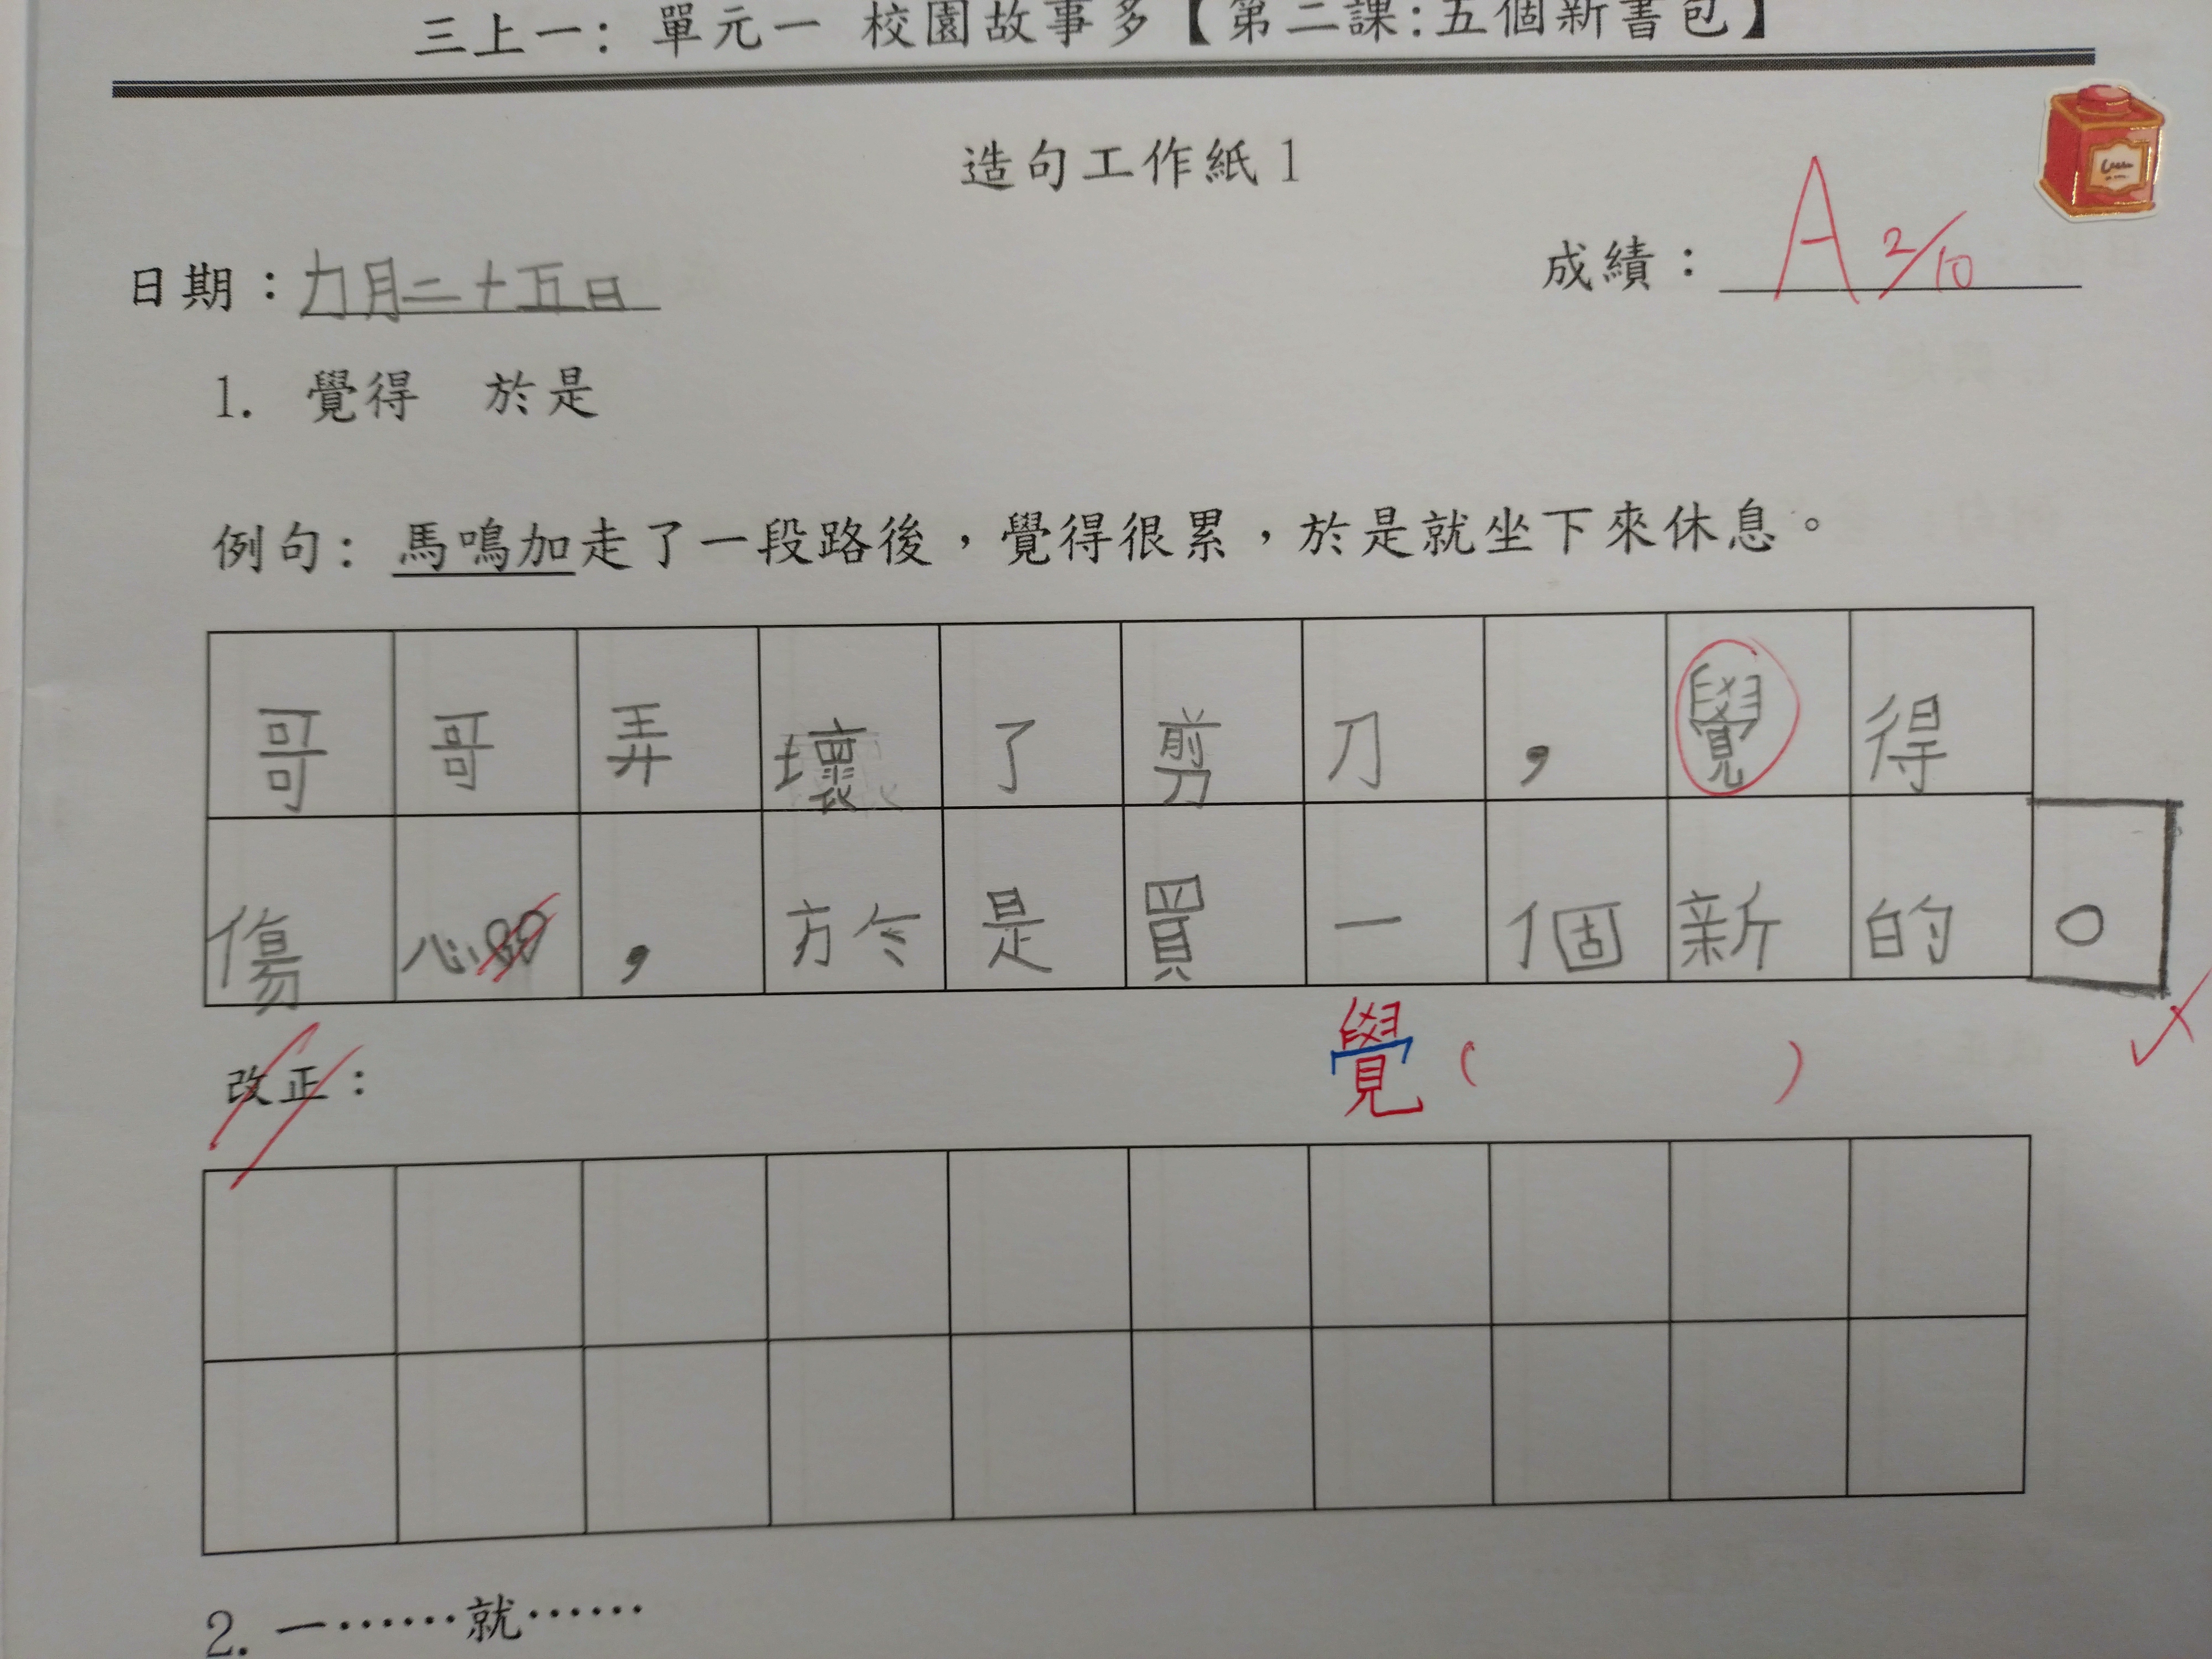 三上一: 單元一 校園故事多【第二課:五個新書包】
造句工作紙1
日期：九月二十五日
成績：A 2/10
1. 覺得 於是
例句: 馬鳴加走了一段路後，覺得很累，於是就坐下來休息。
哥哥弄壞了剪刀，覺得
傷心，於是買一個新的。
覺（ ）
改正：
2. 一……就……